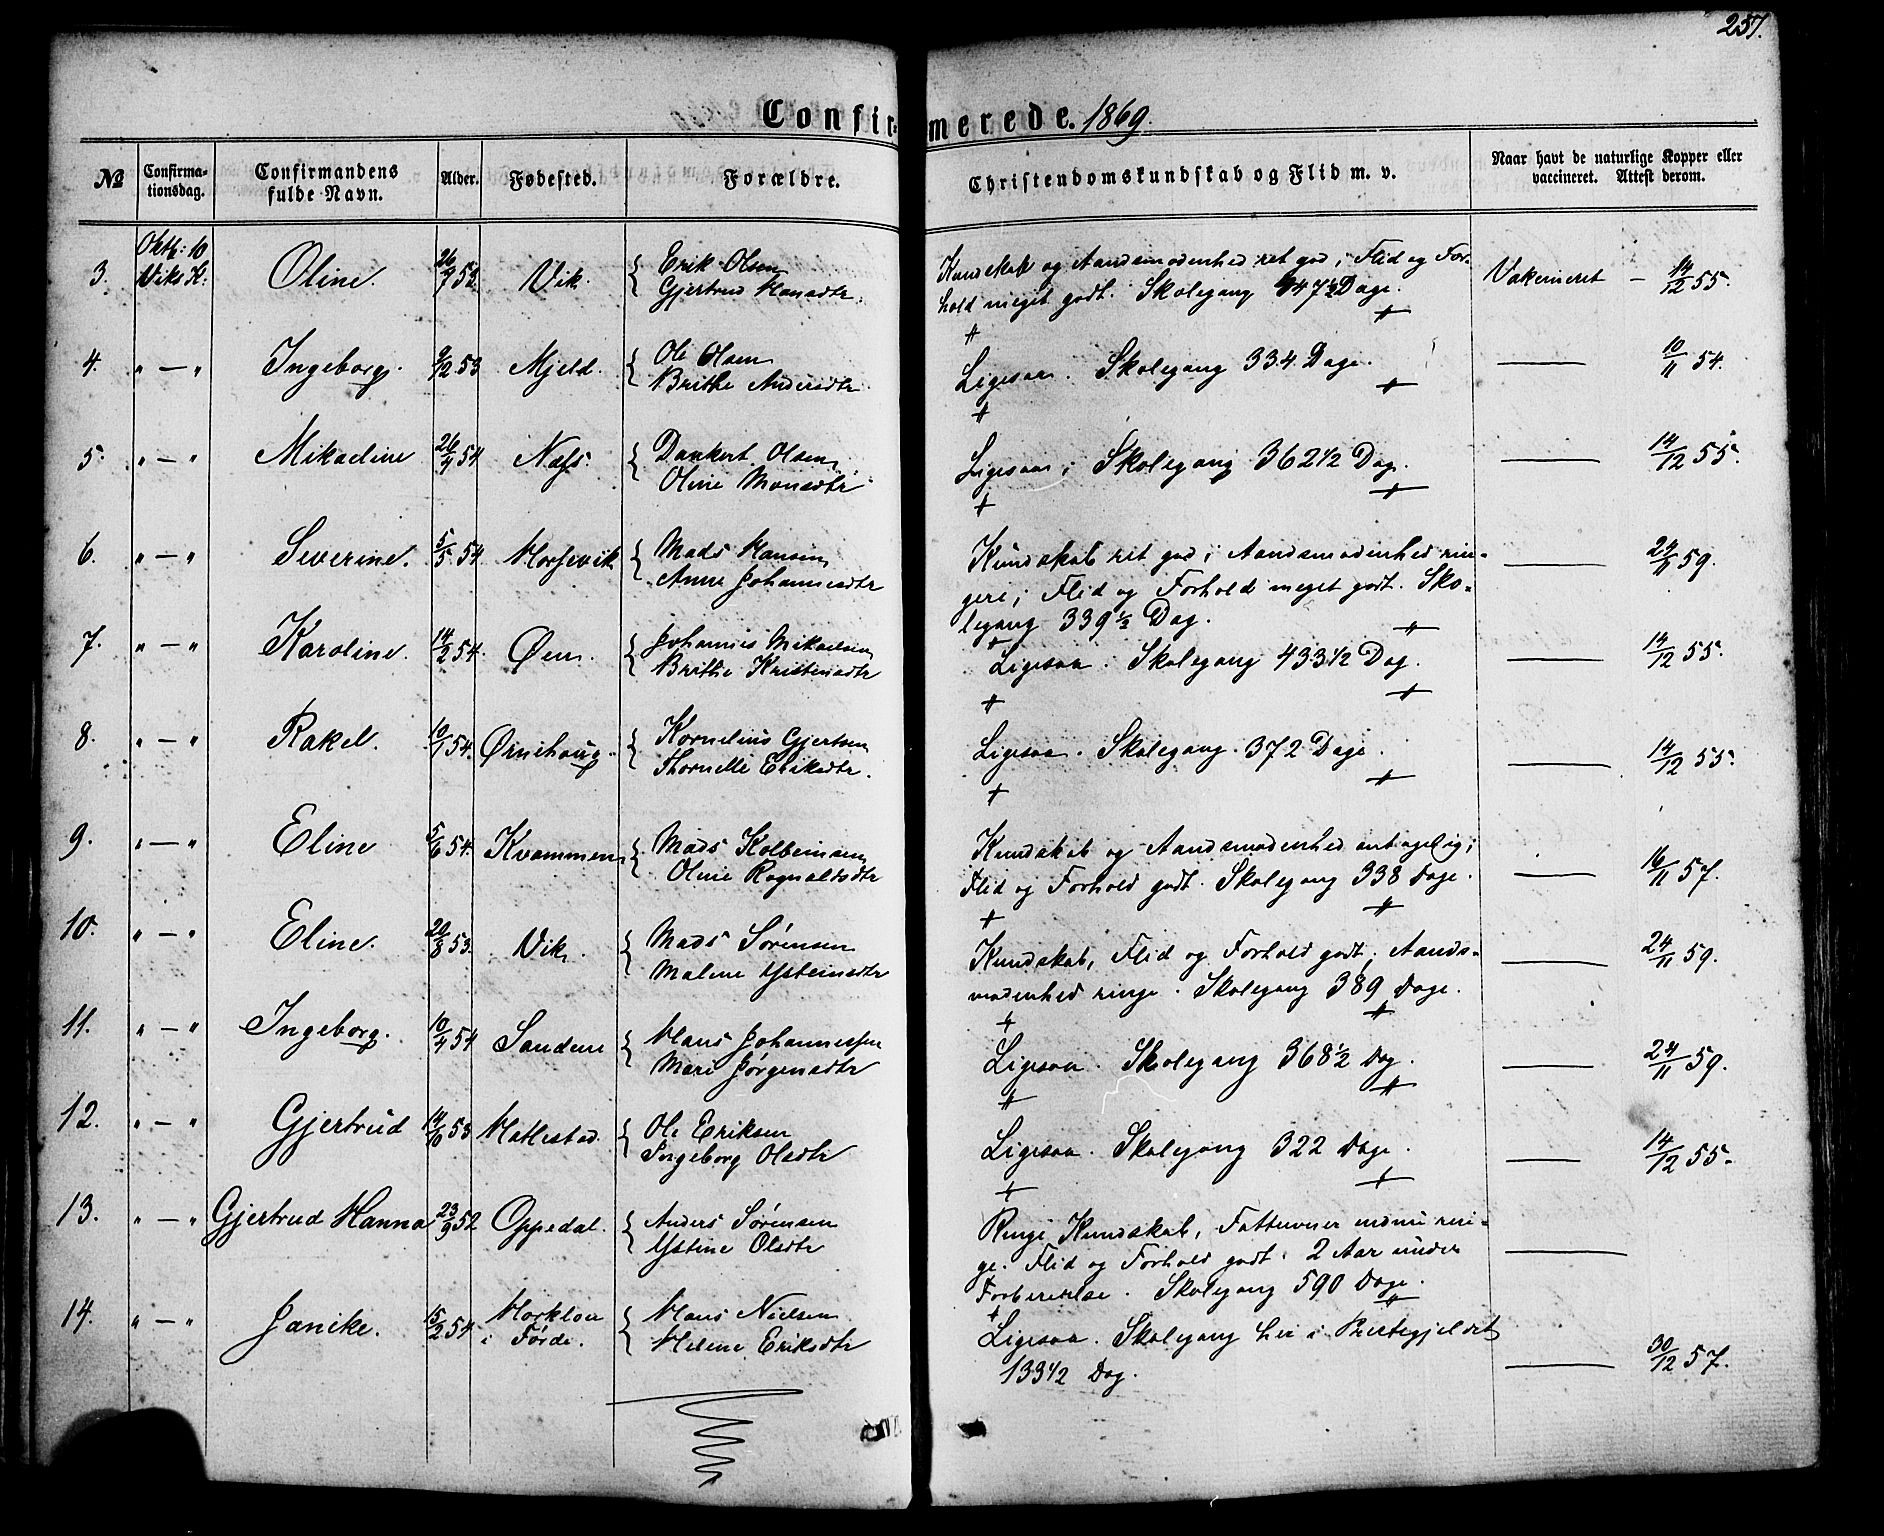 257.
Confirmerede. 1869.
№ Confirmationsdag. Confirmandens fulde Navn. Alder. Fødested. Forældre. Christendomskundskab og Flid m. v. Naar havt de naturlige Kopper eller vaccineret. Attest derom.
3. Oktb: 10 Viks K: Oline. 26/7 52 Vik. { Erik Olsen Gjertrud Hansdtr. Kundskab og Aandsmodenhed ret god; Flid og For-
hold meget godt. Skolegang 347½ Dage. Vakcineret — 14/12 55.
4. " — " Ingeborg. 9/12 53 Mjeld. { Ole Olsen Brithe Andersdtr Ligesaa. Skolegang 334 Dage. —— 10/11 54.
5. " — " Mikaeline 26/4 54 Næss. { Dankert Olsen Oline Monsdtr Ligesaa; Skolegang 362 1/2 Dag. —— 14/12 55.
6. " — " Severine. 5/5 54. Horsevik { Mads Hansen Anne Johannesdtr Kundskab ret god; Aandsmodenhed rin-
gere; Flid og Forhold meget godt. Sko-
legang 339 ½ Dag. —— 24/11 59.
7. " — " Karoline. 14/2 54. Øen. { Johannes Mikaelsen Brithe Kristensdtr Ligesaa. Skolegang 433 1/2 Dag. —— 14/12 55.
8. " — " Rakel. 10/1 54. Ørnehaug. { Kornelius Gjertsen Thornelle Eriksdtr. Ligesaa. Skolegang 372 Dage. —— 14/12 55.
9. " — " Eline 5/6 54. Kvammen { Mads Kolbeinsen Oline Rognaldsdtr Kundskab og Aandsmodenhed antagelig;
Flid og Forhold godt. Skolegang 338 Dage. —— 16/11 57.
10. " — " Eline. 20/8 53. Vik. { Mads Sørensen Malene Ysteinsdtr Kundskab, Flid og Forhold godt; Aands-
modenhed ringe. Skolegang 389 Dage. —— 24/11 59.
11. " — " Ingeborg. 10/4 54 Sandene { Hans Johannessen Mari Jørgensdtr Ligesaa. Skolegang 368 ½ Dag. —— 24/11 59.
12. " — " Gjertrud 14/10 53 Hatlestad. { Ole Eriksen Ingeborg Olsdtr Ligesaa. Skolegang 322 Dage. —— 14/12 55.
13. " — " Gjertrud Hanna 23/9 52 Oppedal. { Anders Sørensen Ystine Olsdtr Ringe Kundskab, Fatteevner endnu rin-
ge. Flid og Forhold godt. 2 Aar under
Forberedelse. Skolegang 590 Dage. ——
14. " — " Janike. 15/2 54 i Førde. { Hans Nielsen Helene Eriksdtr Ligesaa. Skolegang her i Prestegjeldet
133 1/2 Dag. —— 30/12 57.